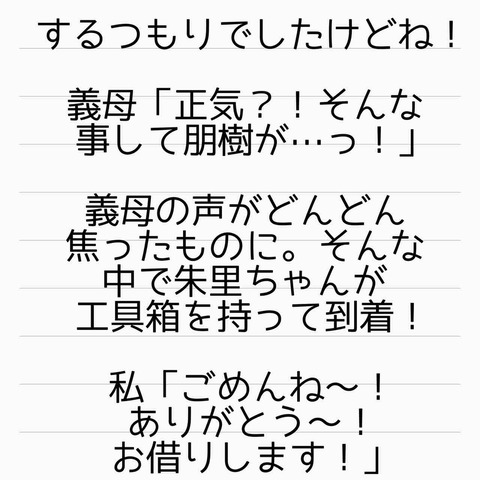 するつもりでしたけどね！
義母「正気？！そんな
事して朋樹が…っ！」
義母の声がどんどん
焦ったものに。そんな
中で朱里ちゃんが
工具箱を持って到着！
私「ごめんね〜！
ありがとう〜！
お借りします！」